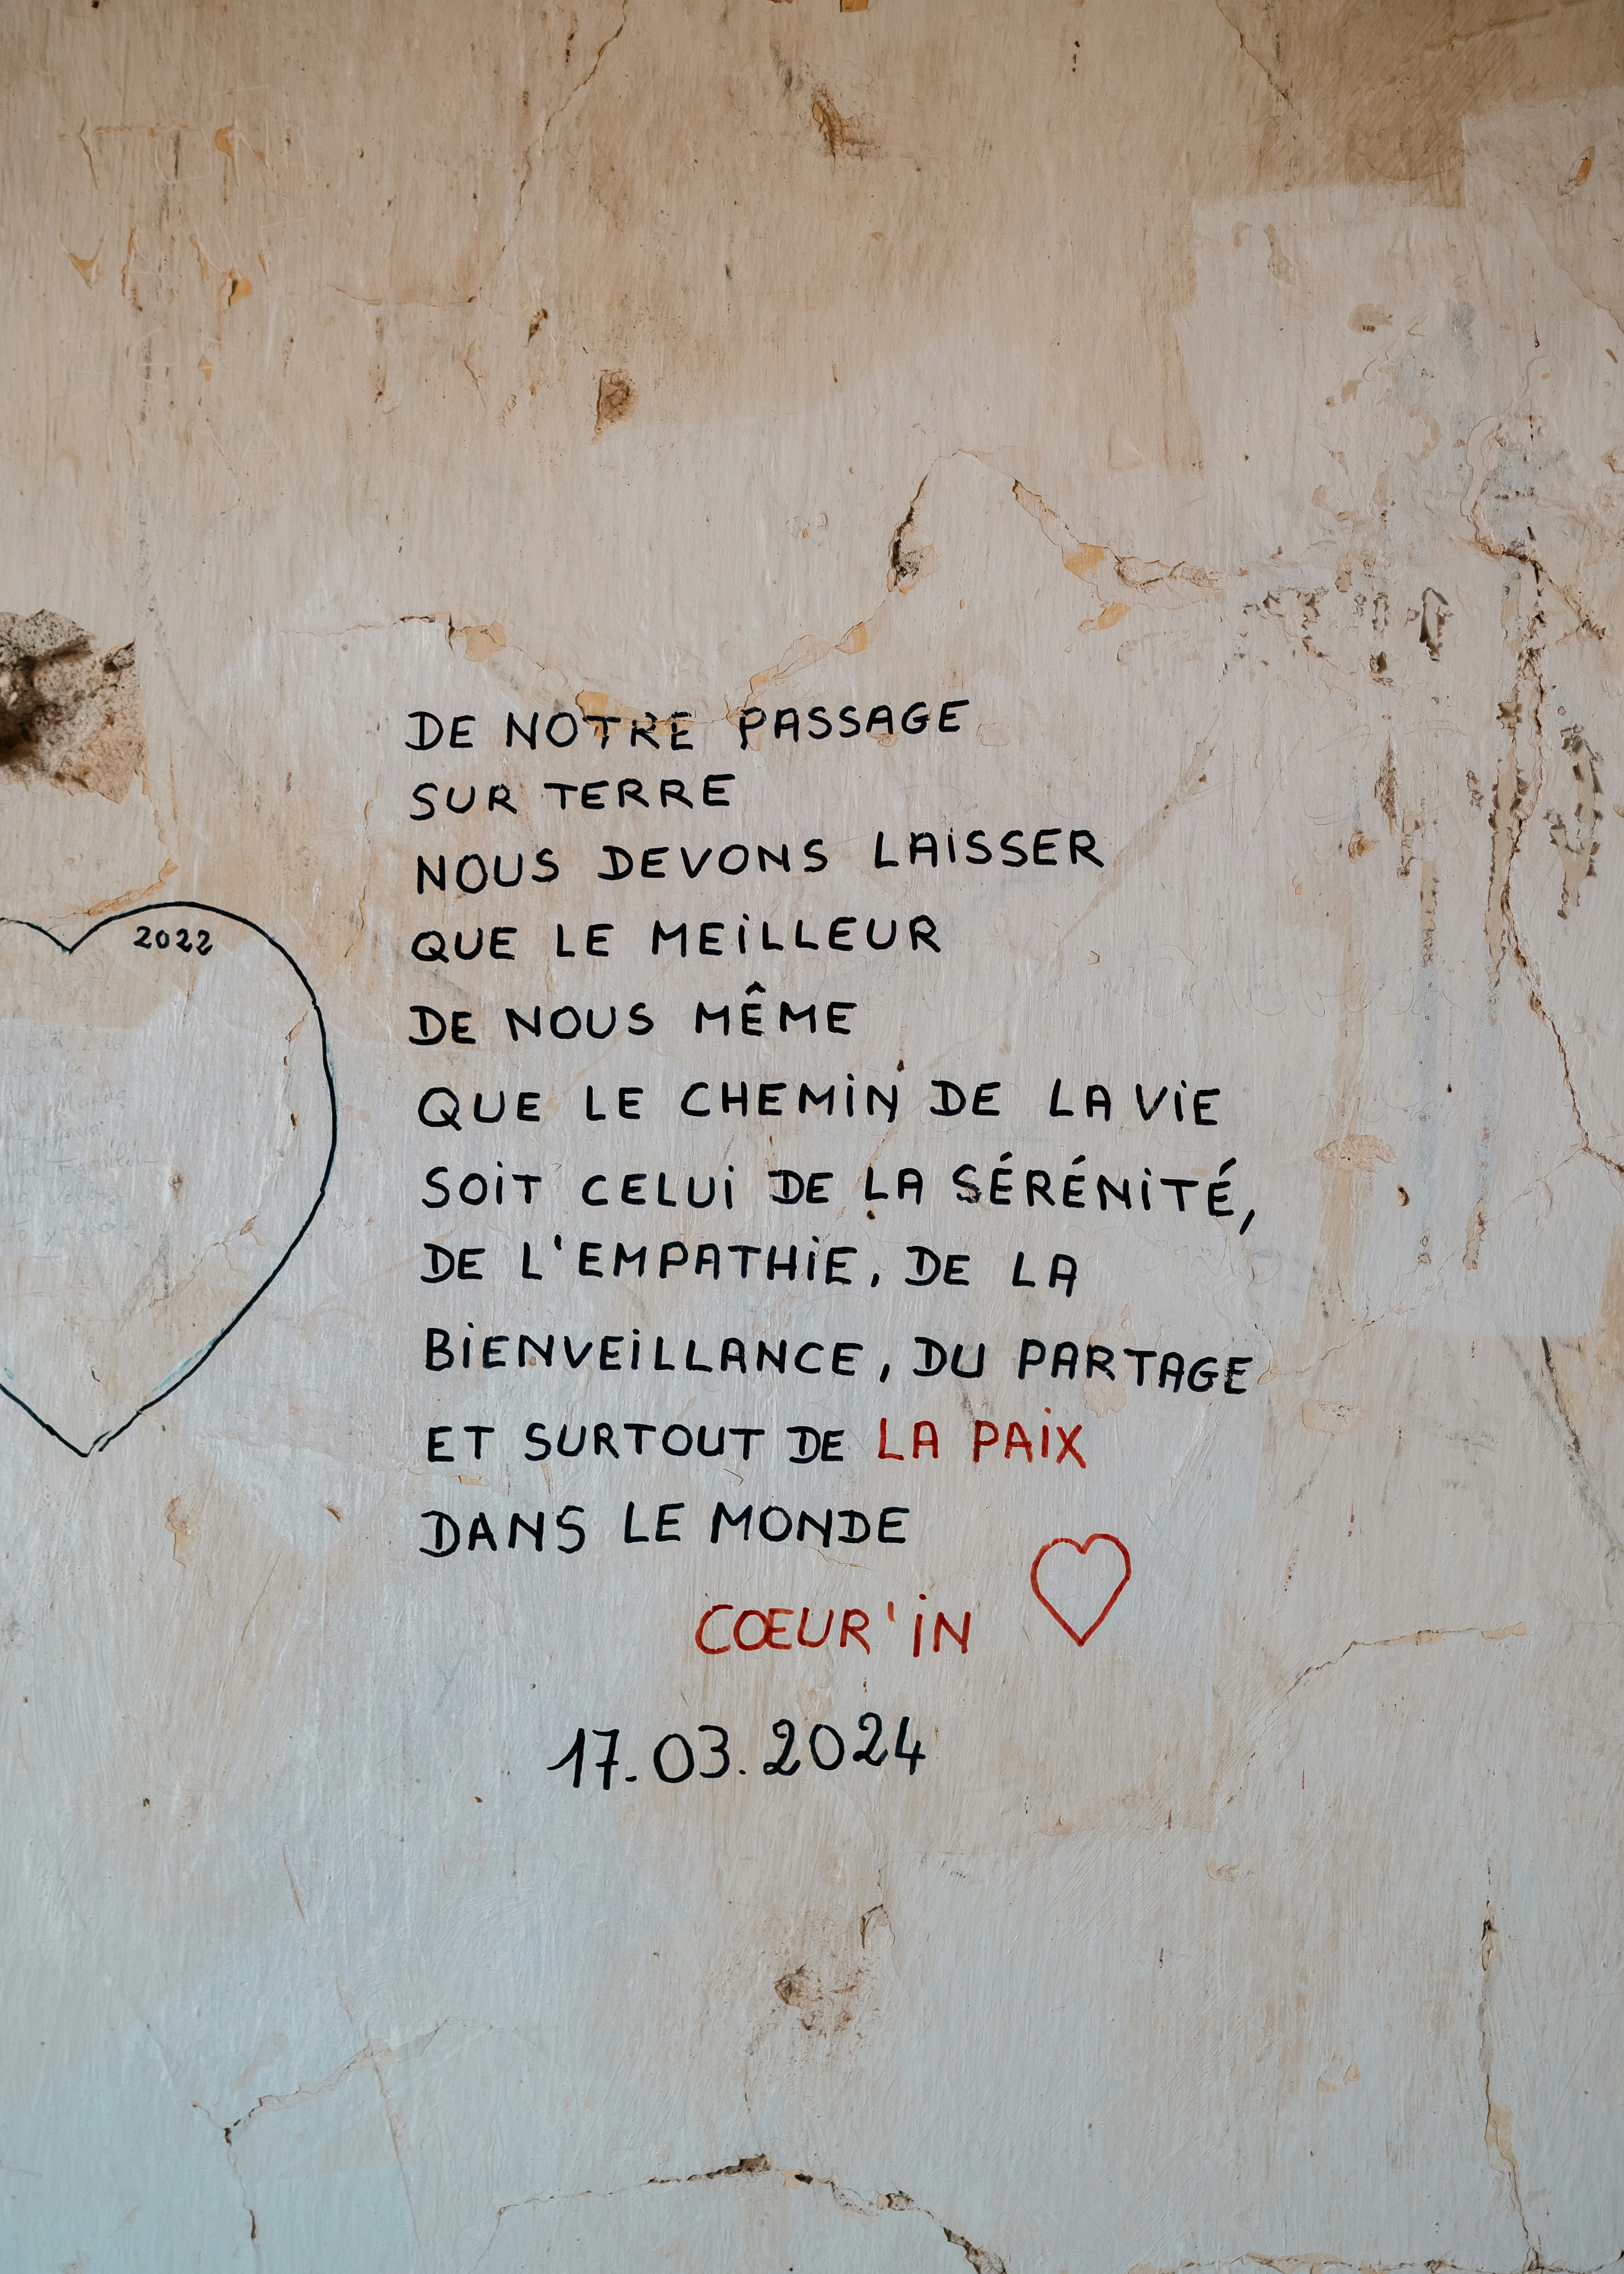 2022
DE NOTRE PASSAGE
SUR TERRE
NOUS DEVONS LAISSER
QUE LE MEILLEUR
DE NOUS MÊME
QUE LE CHEMIN DE LA VIE
SOIT CELUI DE LA SÉRÉNITÉ,
DE L'EMPATHIE, DE LA
BIENVEILLANCE, DU PARTAGE
ET SURTOUT DE LA PAIX
DANS LE MONDE
CŒUR'IN
17.03.2024